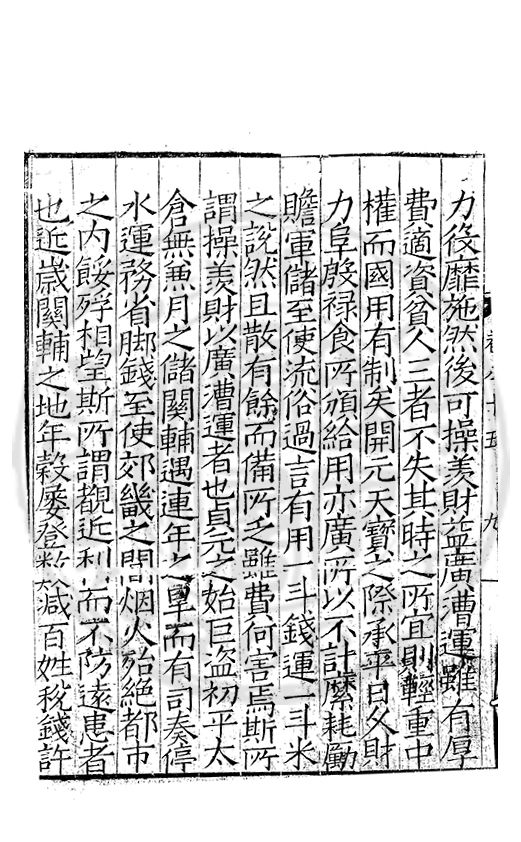 力役靡施然後可操羨財益廣漕運雖有厚
費適資貧人三者不失其時之所宜則輕重中
權而國用有制矣開元天寶之際承平日久財
力阜殷祿食所頒給用亦廣所以不計糜耗勵
贍軍儲至使流俗過言有用一斗錢運一斗米
之說然且散有餘而備所乏雖費何害焉斯所
謂操羨財以廣漕運者也貞元之始巨盜初平太
倉無兼月之儲關輔遇連年之旱而有司奏停
水運務省脚錢至使郊畿之間烟火殆絕都市
之内餒殍相望斯所謂覩近利而不防遠患者
也近歲關輔之地年穀屢登數減百姓稅錢許